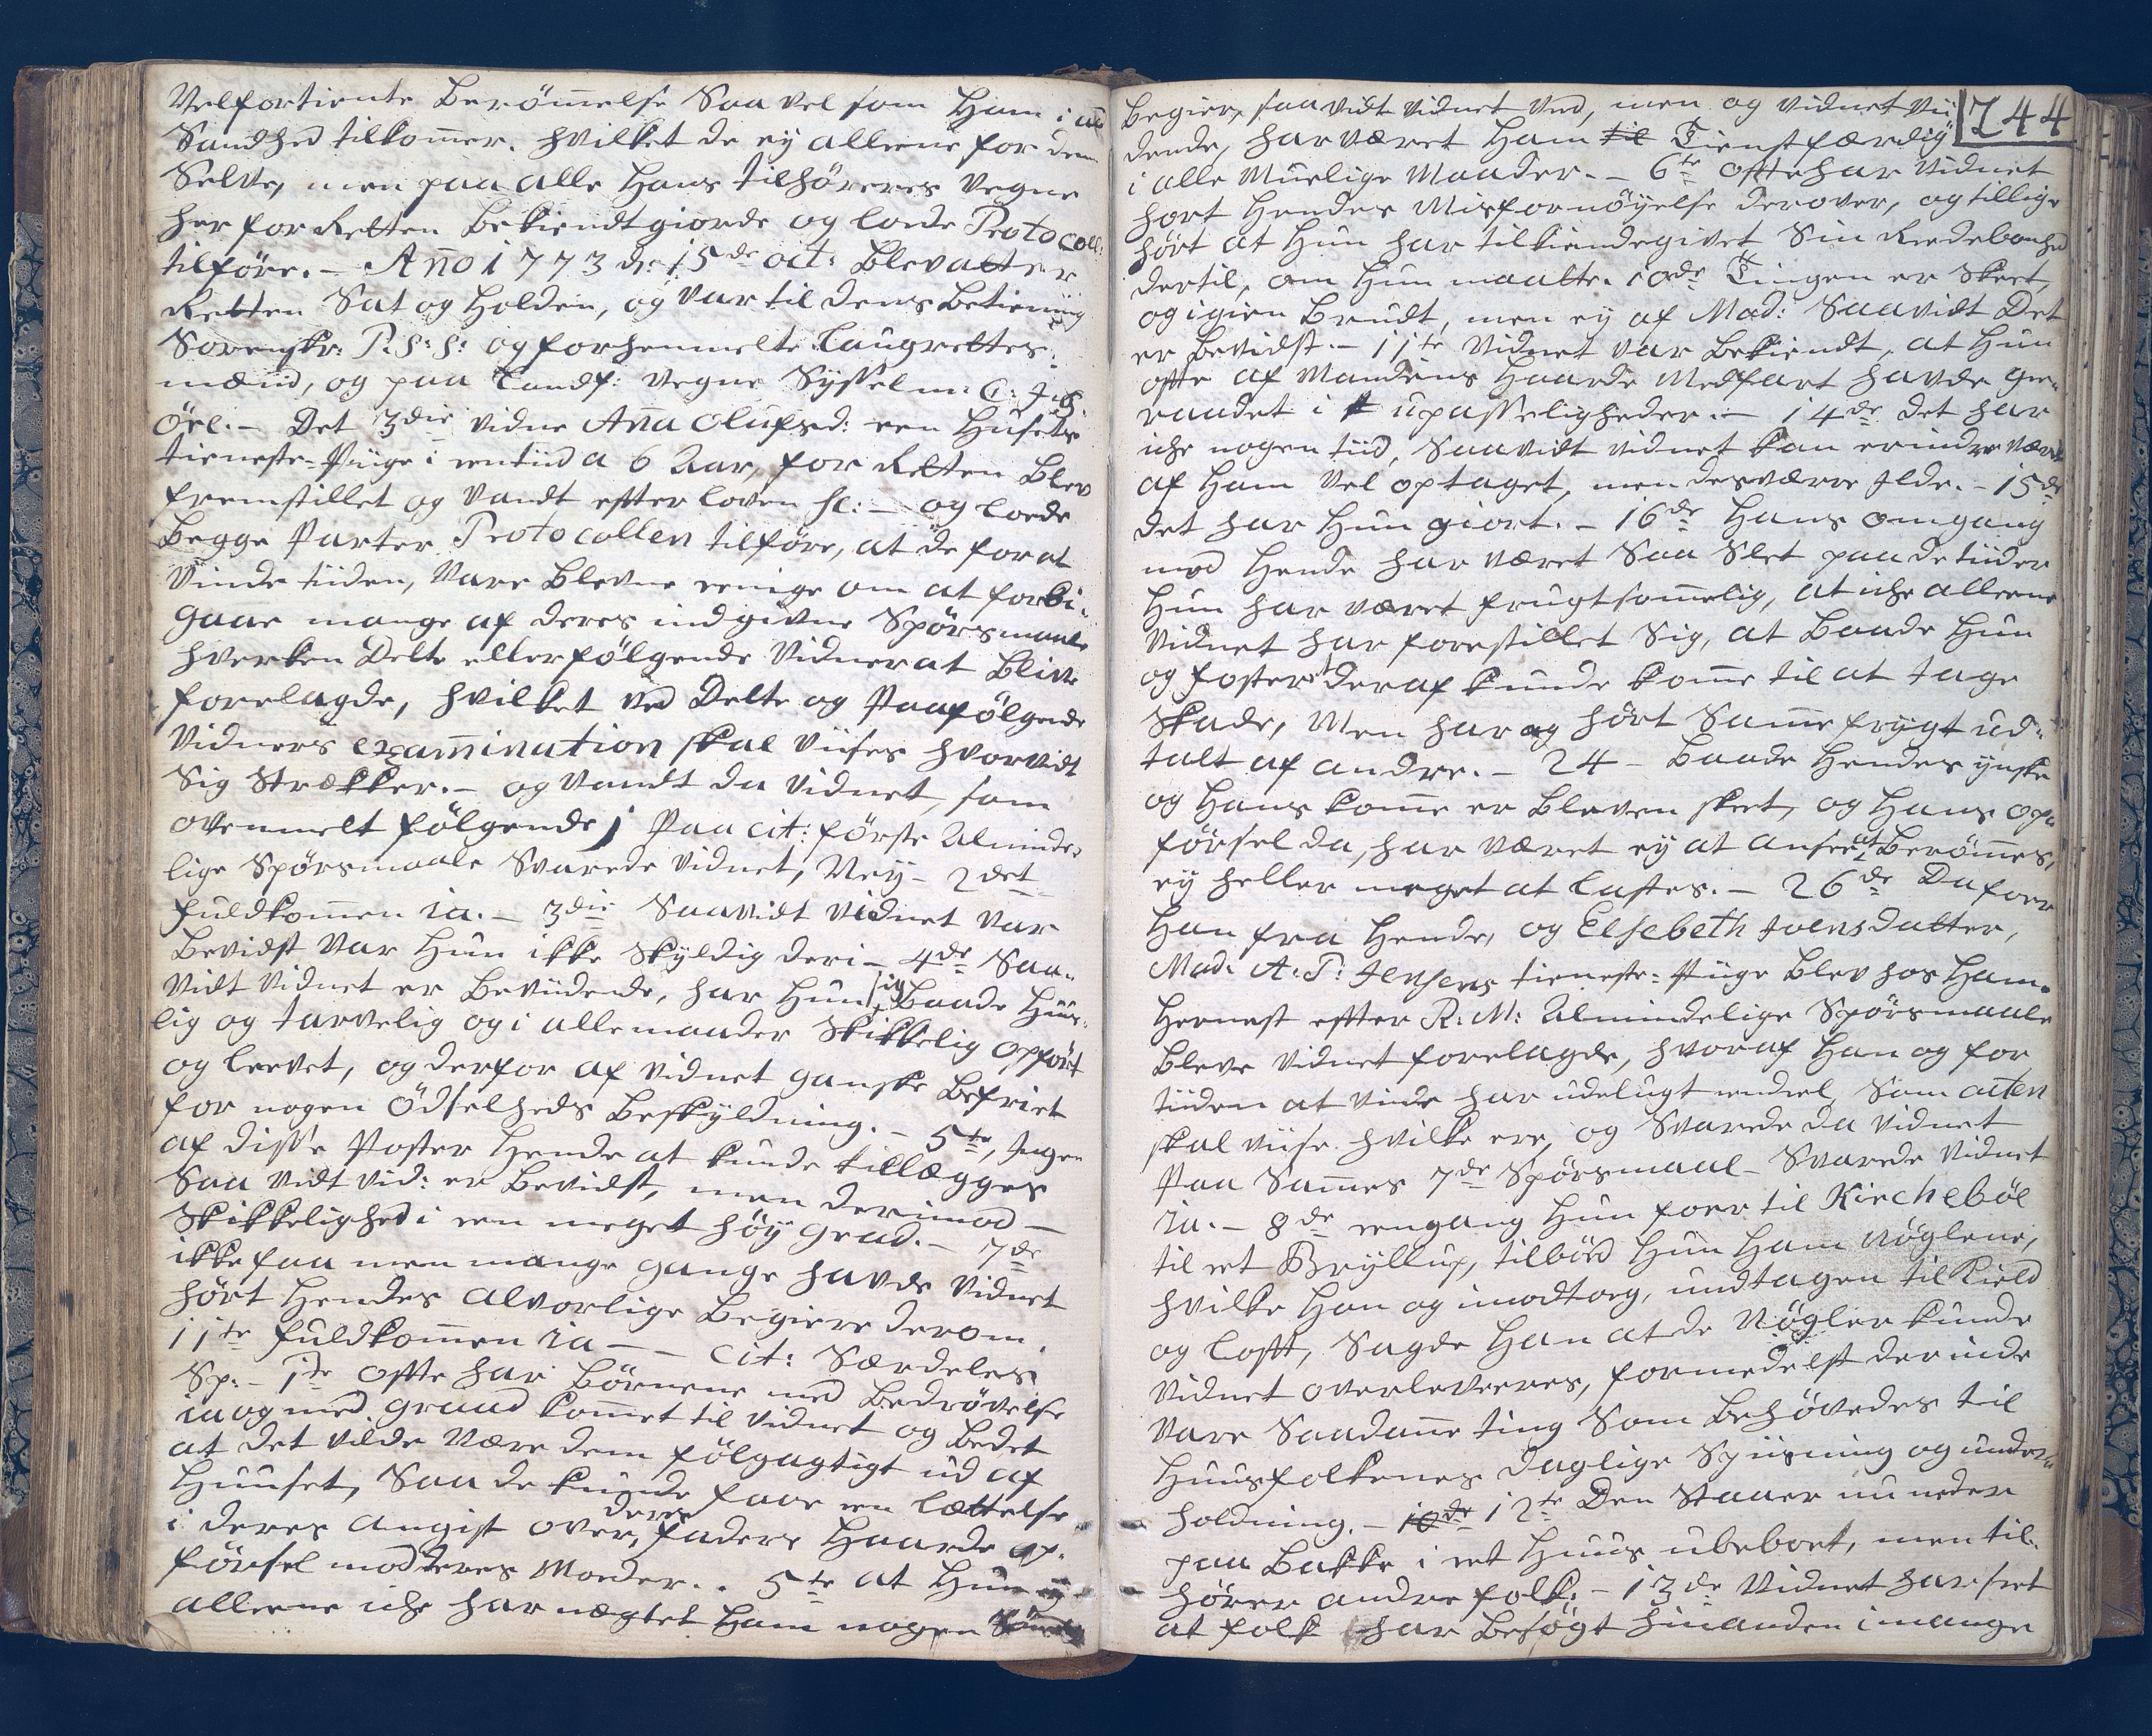 Velfortiente Berömelse Saa vel som Ham i all
Sandhed tilkomer. hvilket de ej alleene for dem
Selve, men paa alle Hans tilhöreres Vegne
her for Retten Bekiendtgiorde og loede Protocoll:
tilföre. – Año 1773 d: 15de oct: Blev atter
Retten Sat og Holden, og var til dens Betiening
Sorenskr: P. S: S: og forhenmelte Laugrettes:
mænd, og paa Landf: Vegne Sysselm: C: J:
Öre. – Det 3die vidne Aña Olufsd: een Husets
tieneste-Piige i een tiid a 6 Aar, for Retten Blev
fremstillet og vandt effter loven etc: – og loede
Begge Parter Protocollen tilföre, at de for at
vinde tiiden, vare Blevne eenige om at forbi-
gaae mange af deres indgivne Spörsmaale
hverken Dette eller fölgende Vidner at Blive
forelagde, hvilket ved Dette og Paafölgende
Vidners examination skal viises hvorvidt
Sig Strækker. – og vandt da Vidnet, som
ovenmelt fölgende; Paa cit: förste Alminde-
lige Spörsmaale Svarede Vidnet, Nej – 2det
fuldkomen ia. – 3die Saavidt vidnet var
Bevidst var Hun ikke Skyldig deri – 4de Saa-
vidt Vidnet er Beviidende, har Hun sig Baade Huus-
lig og tarvelig og i alle maader Skikkelig opfört
og leevet, og derfor af vidnet ganske Befriet
for nogen Ödselheds Beskyldning. – 5te, Ingen
af disse Poster Hende at kunde tillægges
Saa vidt vid: er Bevidst, men derimod –
Skikkelighed i een meget höy Grad. – 7de
ikke faa men mange gange havde Vidnet
hört Hendes alvorlige Begiere derom
11te fuldkomen ia – – cit: Særdeles
Sp: – 1te offte har Börnene med Bedrövelse
ia og med graad komet til vidnet og Bedet
at det vilde være dem fölgagtigt ud af
Huuset, Saa de kunde faae een lættelse
i deres angist over deres faders Haarde op-
försel mod deres Moder. . 5te at Hun ej
alleene iche har nægtet Ham nogen
Begier, saavidt vidnet ved, men og vidnet vii-
244
dende, har været Ham til Tienstfærdig
i alle Muelige Maader. – 6te offte har vidnet
hört Hendes Misfornöyelse derover, og tillige
hört at Hun har tilkiendegivet Sin Reedebonhed
dertil, om Hun maatte. 10de Tingen er Skeet,
og igien Brudt, men ej af Mad: Saavidt Det
er Bevidst. – 11te Vidnet var Bekiendt, at Hun
offte af Mandens Haarde Medfart havde ge-
raadet i upasseligheder. – 14de det har
iche nogen tiid, Saavidt vidnet kan erindre været
af Ham vel optaget, men desværre Ilde. – 15de
det har Hun giort. – 16de Hans omgang
mod Hende har været Saa Slet paa de tiider
Hun har været frugtsomelig, at iche alleene
Vidnet har forestillet Sig, at Baade Hun
og fosteret deraf kunde kome til at tage
Skade, Men har og hört Same frygt ud-
talt af andre. – 24 – Baade Hendes ynske
og Hans kome er Bleven skeet, og Hans op-
försel da, har været ej at ansee at Berömes,
ej heller meget at lastes. – 26de Da foer
Han fra Hende, og Elsebeth Joensdatter,
Mad: A: P: Jensens tieneste-Piige Blev hos Ham.
Hernest effter R: M: Almindelige Spörsmaale
Bleve vidnet forelagde, hvoraf Han og for
tiiden at vinde har udelugt eendeel, Som acten
skal viise hvilke ere, og Svarede da vidnet
Paa Sames 7de Spörsmaal – Svarede Vidnet
ia. – 8de eengang Hun foer til Kircheböe
til et Bryllup, tilböd Hun Ham Nöglene,
hvilke Han og imodtoeg, undtagen til Kield
og loft, Sagde Han at de Nögler kunde
Vidnet overleveeres, formedelst derinde
vare Saadane ting Som Behövedes til
Huusfolkenes daglige Spiisning og under-
holdning. – 10de 12te Den Staaer nu neder
paa Bakke i et Huus ubeboet, men til-
hörer andre folk. – 13de Vidnet har seet
at folk har Besögt hinanden i mange